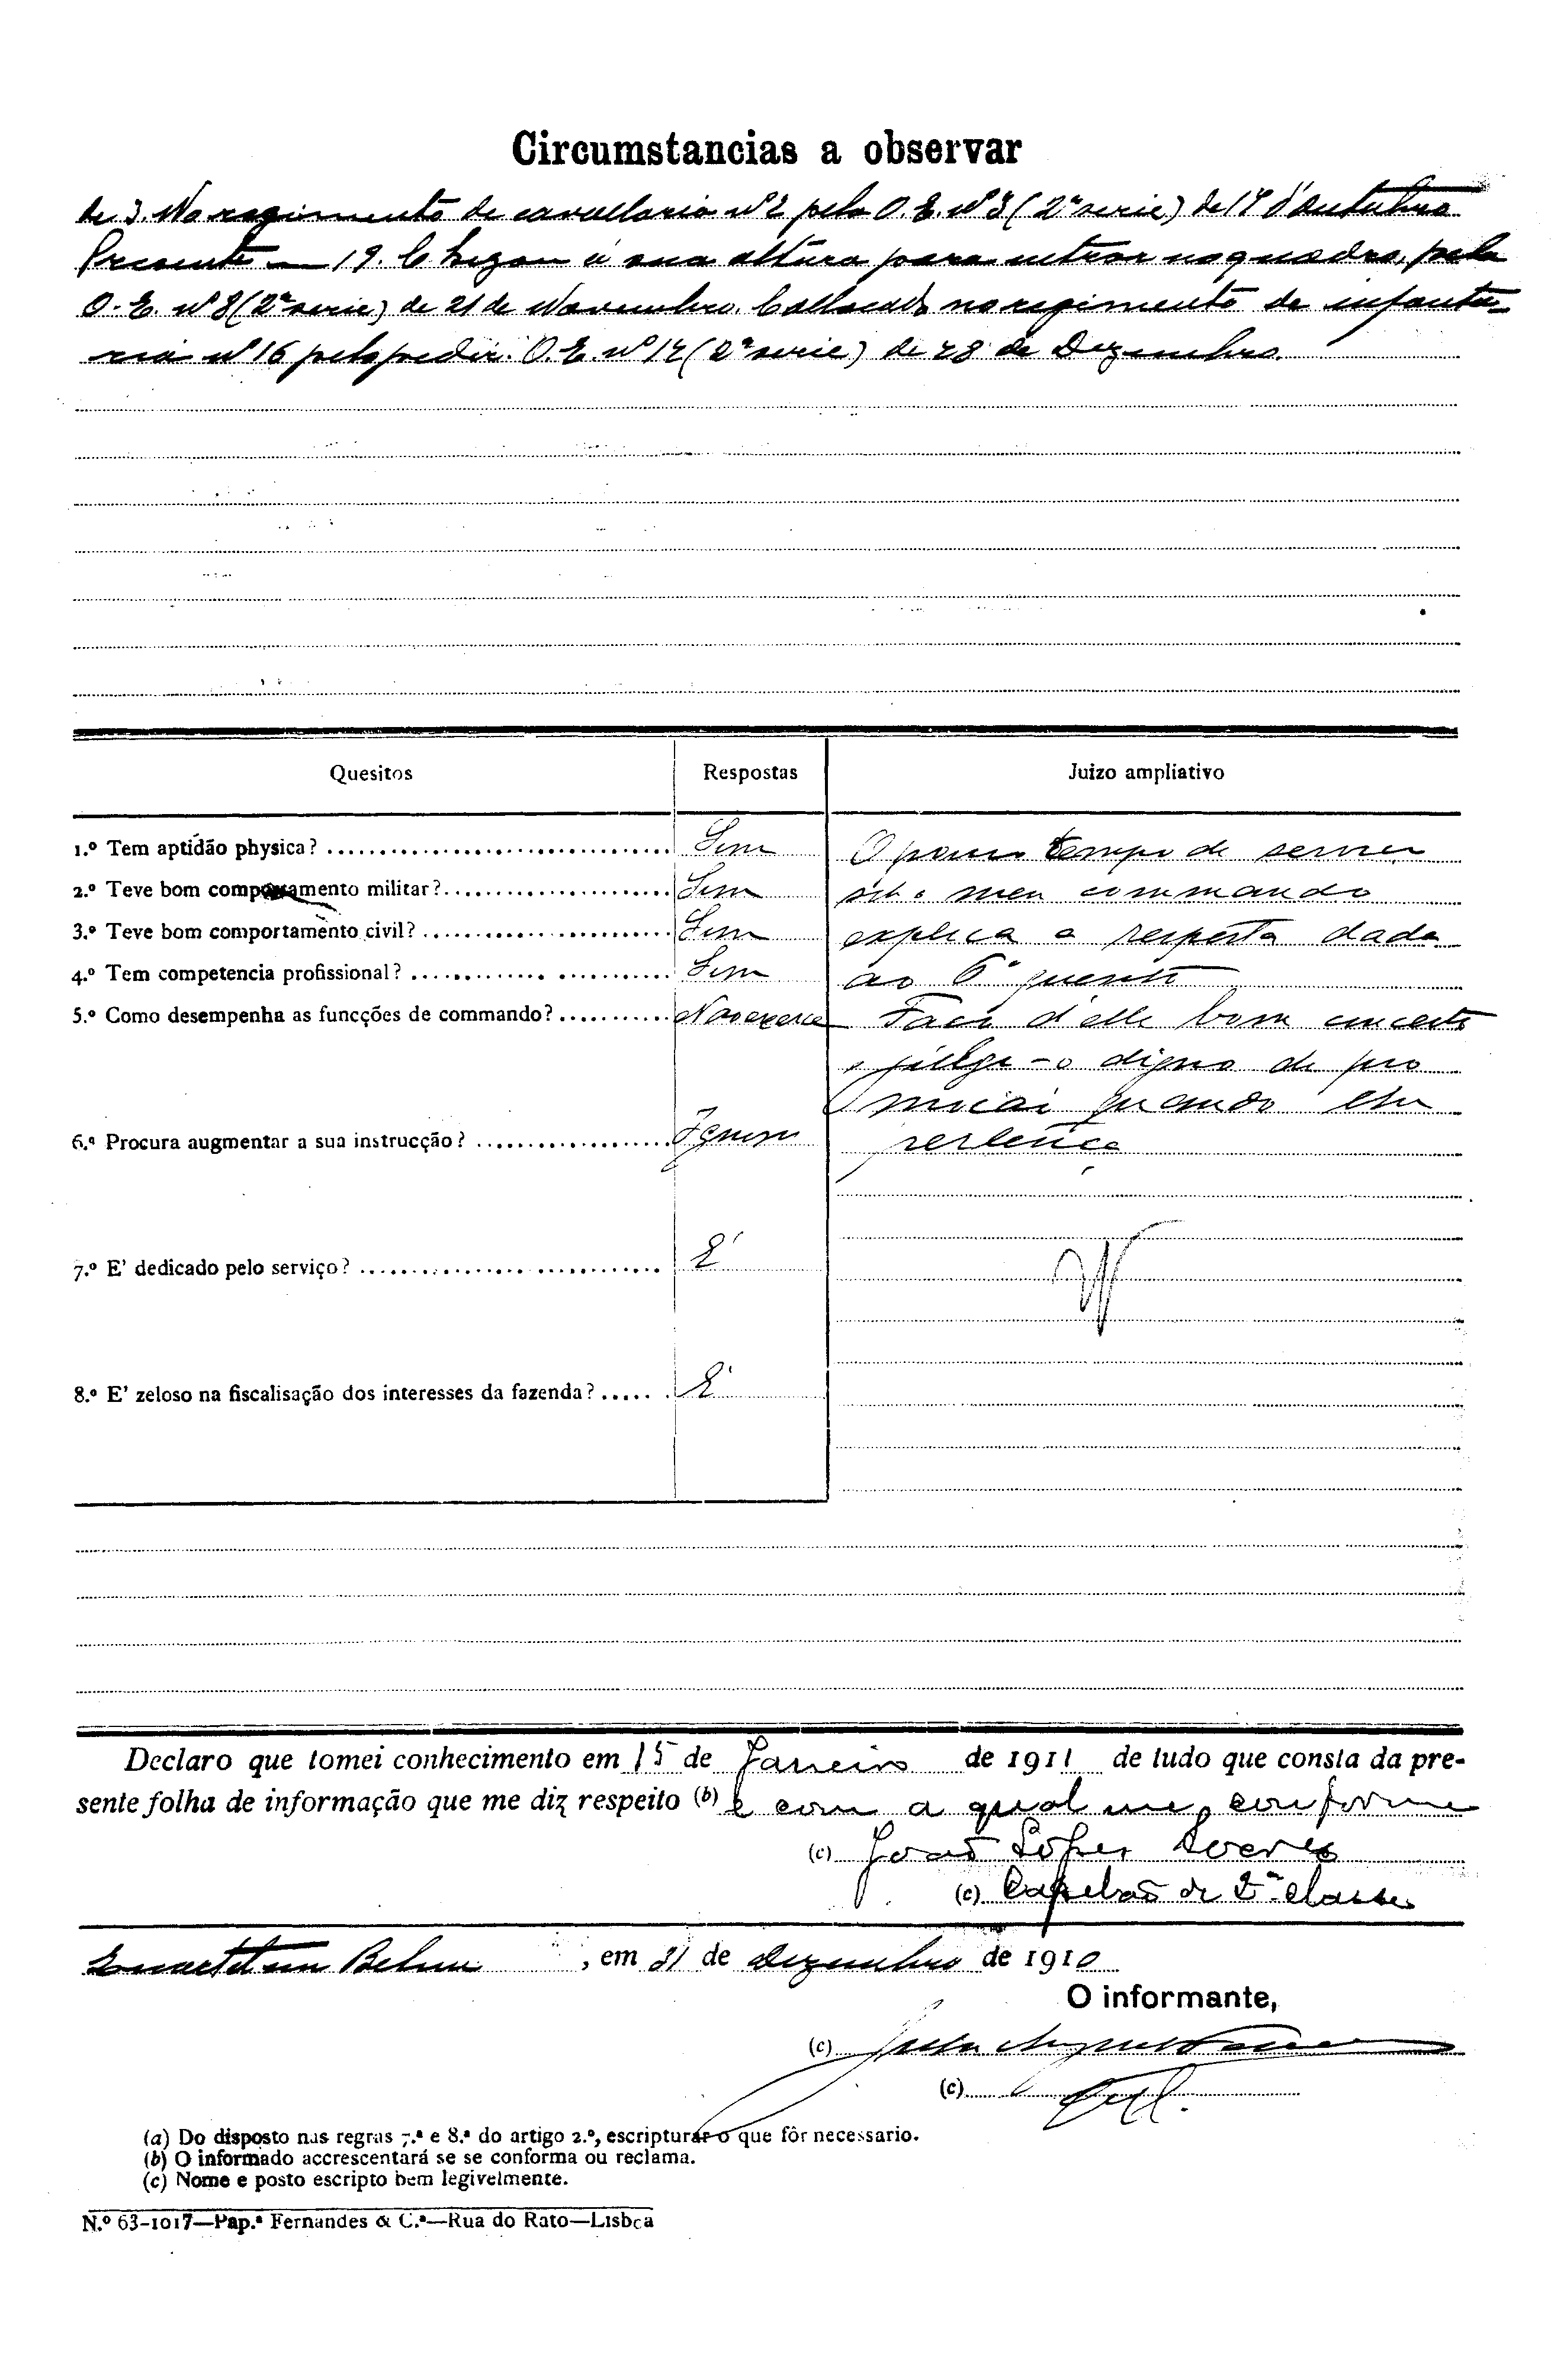 Circumstancias a observar
de 3. No regimento de cavallaria nº 2 pela O. E. nº 3 (2ª serie) de 19 d'Outubro
Presente — 19. Chegou á sua altura para entrar no quadro, pela
O. E. nº 8 (2ª serie) de 21 de Novembro. Collocado no regimento de infanta-
ria nº 16 pelo pedir. O. E. nº 14 (2ª serie) de 28 de Dezembro.
Quesitos Respostas Juizo ampliativo
1.º Tem aptidão physica? Sim O pouco tempo de servir
2.º Teve bom comportamento militar? Sim sob o meu commando
3.º Teve bom comportamento civil? Sim explica a resposta dada
4.º Tem competencia profissional? Sim ao 6º quesito
5.º Como desempenha as funcções de commando? Não exerce Faço d'elle bom conceito
e julgo-o digno de pro
moção quando lhe
6.º Procura augmentar a sua instrucção? Ignoro pertença
7.º E' dedicado pelo serviço? É
8.º E' zeloso na fiscalisação dos interesses da fazenda? É
Declaro que tomei conhecimento em 15 de Janeiro de 1911 de tudo que consta da pre-
sente folha de informação que me diz respeito (b) e com a qual me conformo
(c) João Lopes Soares
(c) Capelão de 2ª classe
Quartel em Belem, em 31 de Dezembro de 1910
O informante,
(c)
(c)
(a) Do disposto nas regras 7.ª e 8.ª do artigo 2.º, escripturar o que fôr necessario.
(b) O informado accrescentará se se conforma ou reclama.
(c) Nome e posto escripto bem legivelmente.
N.º 63-1017—Pap.ª Fernandes & C.ª—Rua do Rato—Lisboa